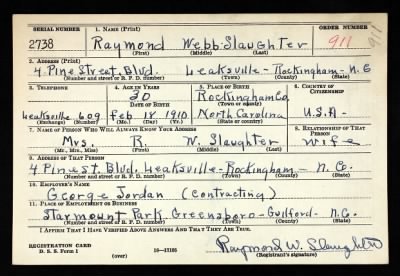 SERIAL NUMBER 1. NAME (Print) ORDER NUMBER
2738 Raymond Webb Slaughter 911 911
(First) (Middle) (Last)
2. ADDRESS (Print)
4. Pine Street. Blvd. Leaksville - Rockingham - N.C
(Number and street or R. F. D. number) (Town) (County) (State)
3. TELEPHONE 4. AGE IN YEARS 5. PLACE OF BIRTH 6. COUNTRY OF CITIZENSHIP
30 Rockingham Co,
DATE OF BIRTH (Town or county)
Leaksville 609 Feb 18 1910 North Carolina U.S.A -
(Exchange) (Number) (Mo.) (Day) (Yr.) (State or country)
7. NAME OF PERSON WHO WILL ALWAYS KNOW YOUR ADDRESS 8. RELATIONSHIP OF THAT PERSON
Mrs. R. W. Slaughter wife
(Mr., Mrs., Miss) (First) (Middle) (Last)
9. ADDRESS OF THAT PERSON
4 Pine St. Blvd. Leaksville - Rockingham - N. Co.
(Number and street or R. F. D. number) (Town) (County) (State)
10. EMPLOYER'S NAME
George Jordan (Contracting)
11. PLACE OF EMPLOYMENT OR BUSINESS
Starmount Park Greensboro - Guilford - N.C.
(Number and street or R. F. D. number) (Town) (County) (State)
I AFFIRM THAT I HAVE VERIFIED ABOVE ANSWERS AND THAT THEY ARE TRUE.
REGISTRATION CARD
D. S. S. Form 1 16-17105 Raymond W. Slaughter
(Registrant's signature)